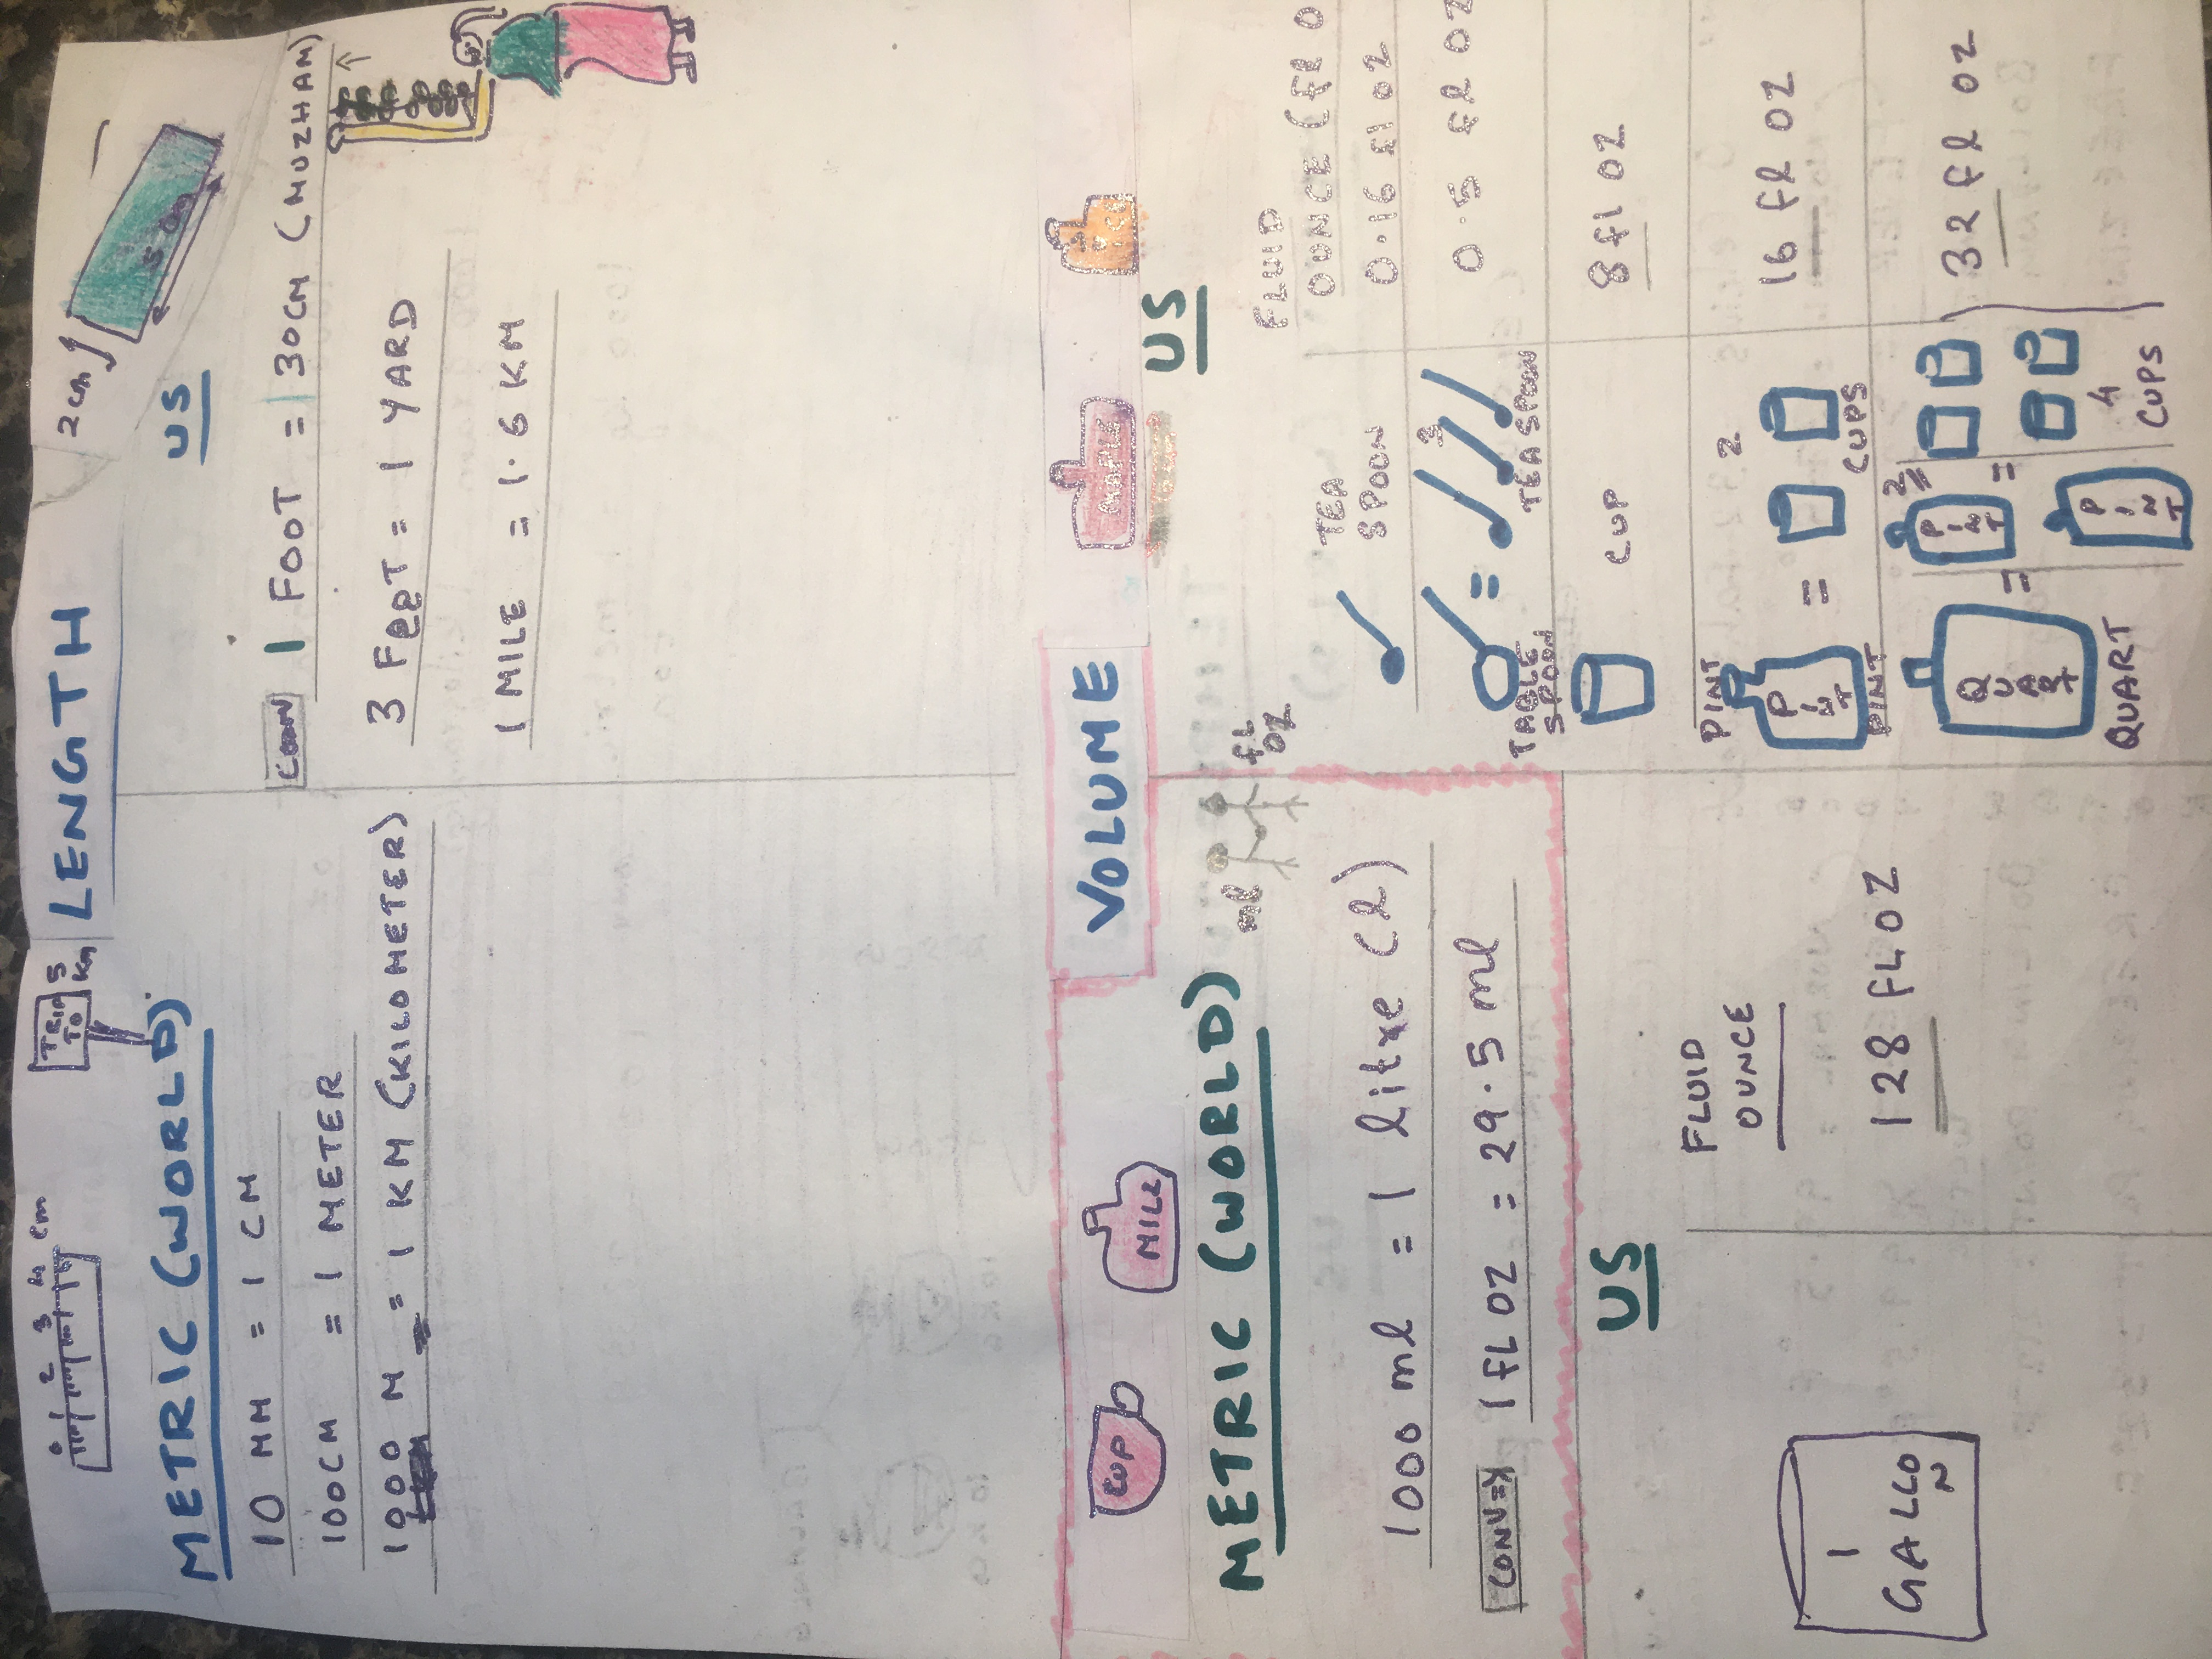 0 1 2 3 4 cm
TRIP
TO
5
Km
LENGTH
2cm
5 cm
METRIC (WORLD)
10 MM = 1 CM
100CM = 1 METER
1000 M = 1 KM (KILOMETER)
US
CONV 1 FOOT = 30CM (MUZHAM)
3 FeeT = 1 YARD
1 MILE = 1.6 KM
VOLUME
CUP
MILK
MAPLE
METRIC (WORLD)
ml
fL
OZ
1000 ml = 1 litre (l)
CONV 1 fL OZ = 29.5 ml
US
FLUID
OUNCE
1
GALLO
N
128 FL OZ
US
FLUID
OUNCE (fl O
TEA
SPOON
0.16 fl oz
TABLE
SPOON
=
3
TEA SPOON
0.5 fl oz
CUP
8 fl oz
PINT
PINT
PINT
=
2
CUPS
16 fl oz
QUART
QUART
=
2
PINT
PINT
=
4
CUPS
32 fl oz